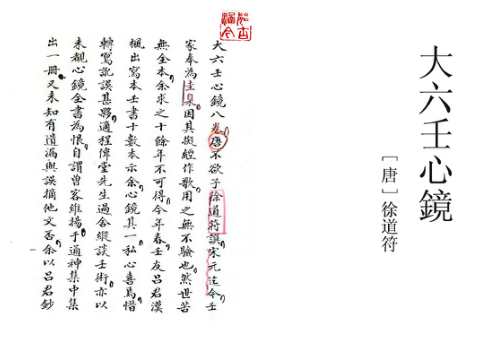 大六壬心鏡
［唐］徐道符
大六壬心鏡八卷唐不欲子徐道符譔宋元迄今壬
家奉為圭臬因其擬經作歌用之無不驗也然世苦
無全本余求之十餘年不可得今年春壬友呂君漢
楓出寫本壬書十數本示余心鏡其一私心喜焉惜
轉寫訛誤甚夥適程偉堂先生過舍縱談壬術亦以
未覩心鏡全書為恨自謂曾客維揚手通神集中集
出一冊又未知有遺漏與誤摘他文否余以呂君鈔